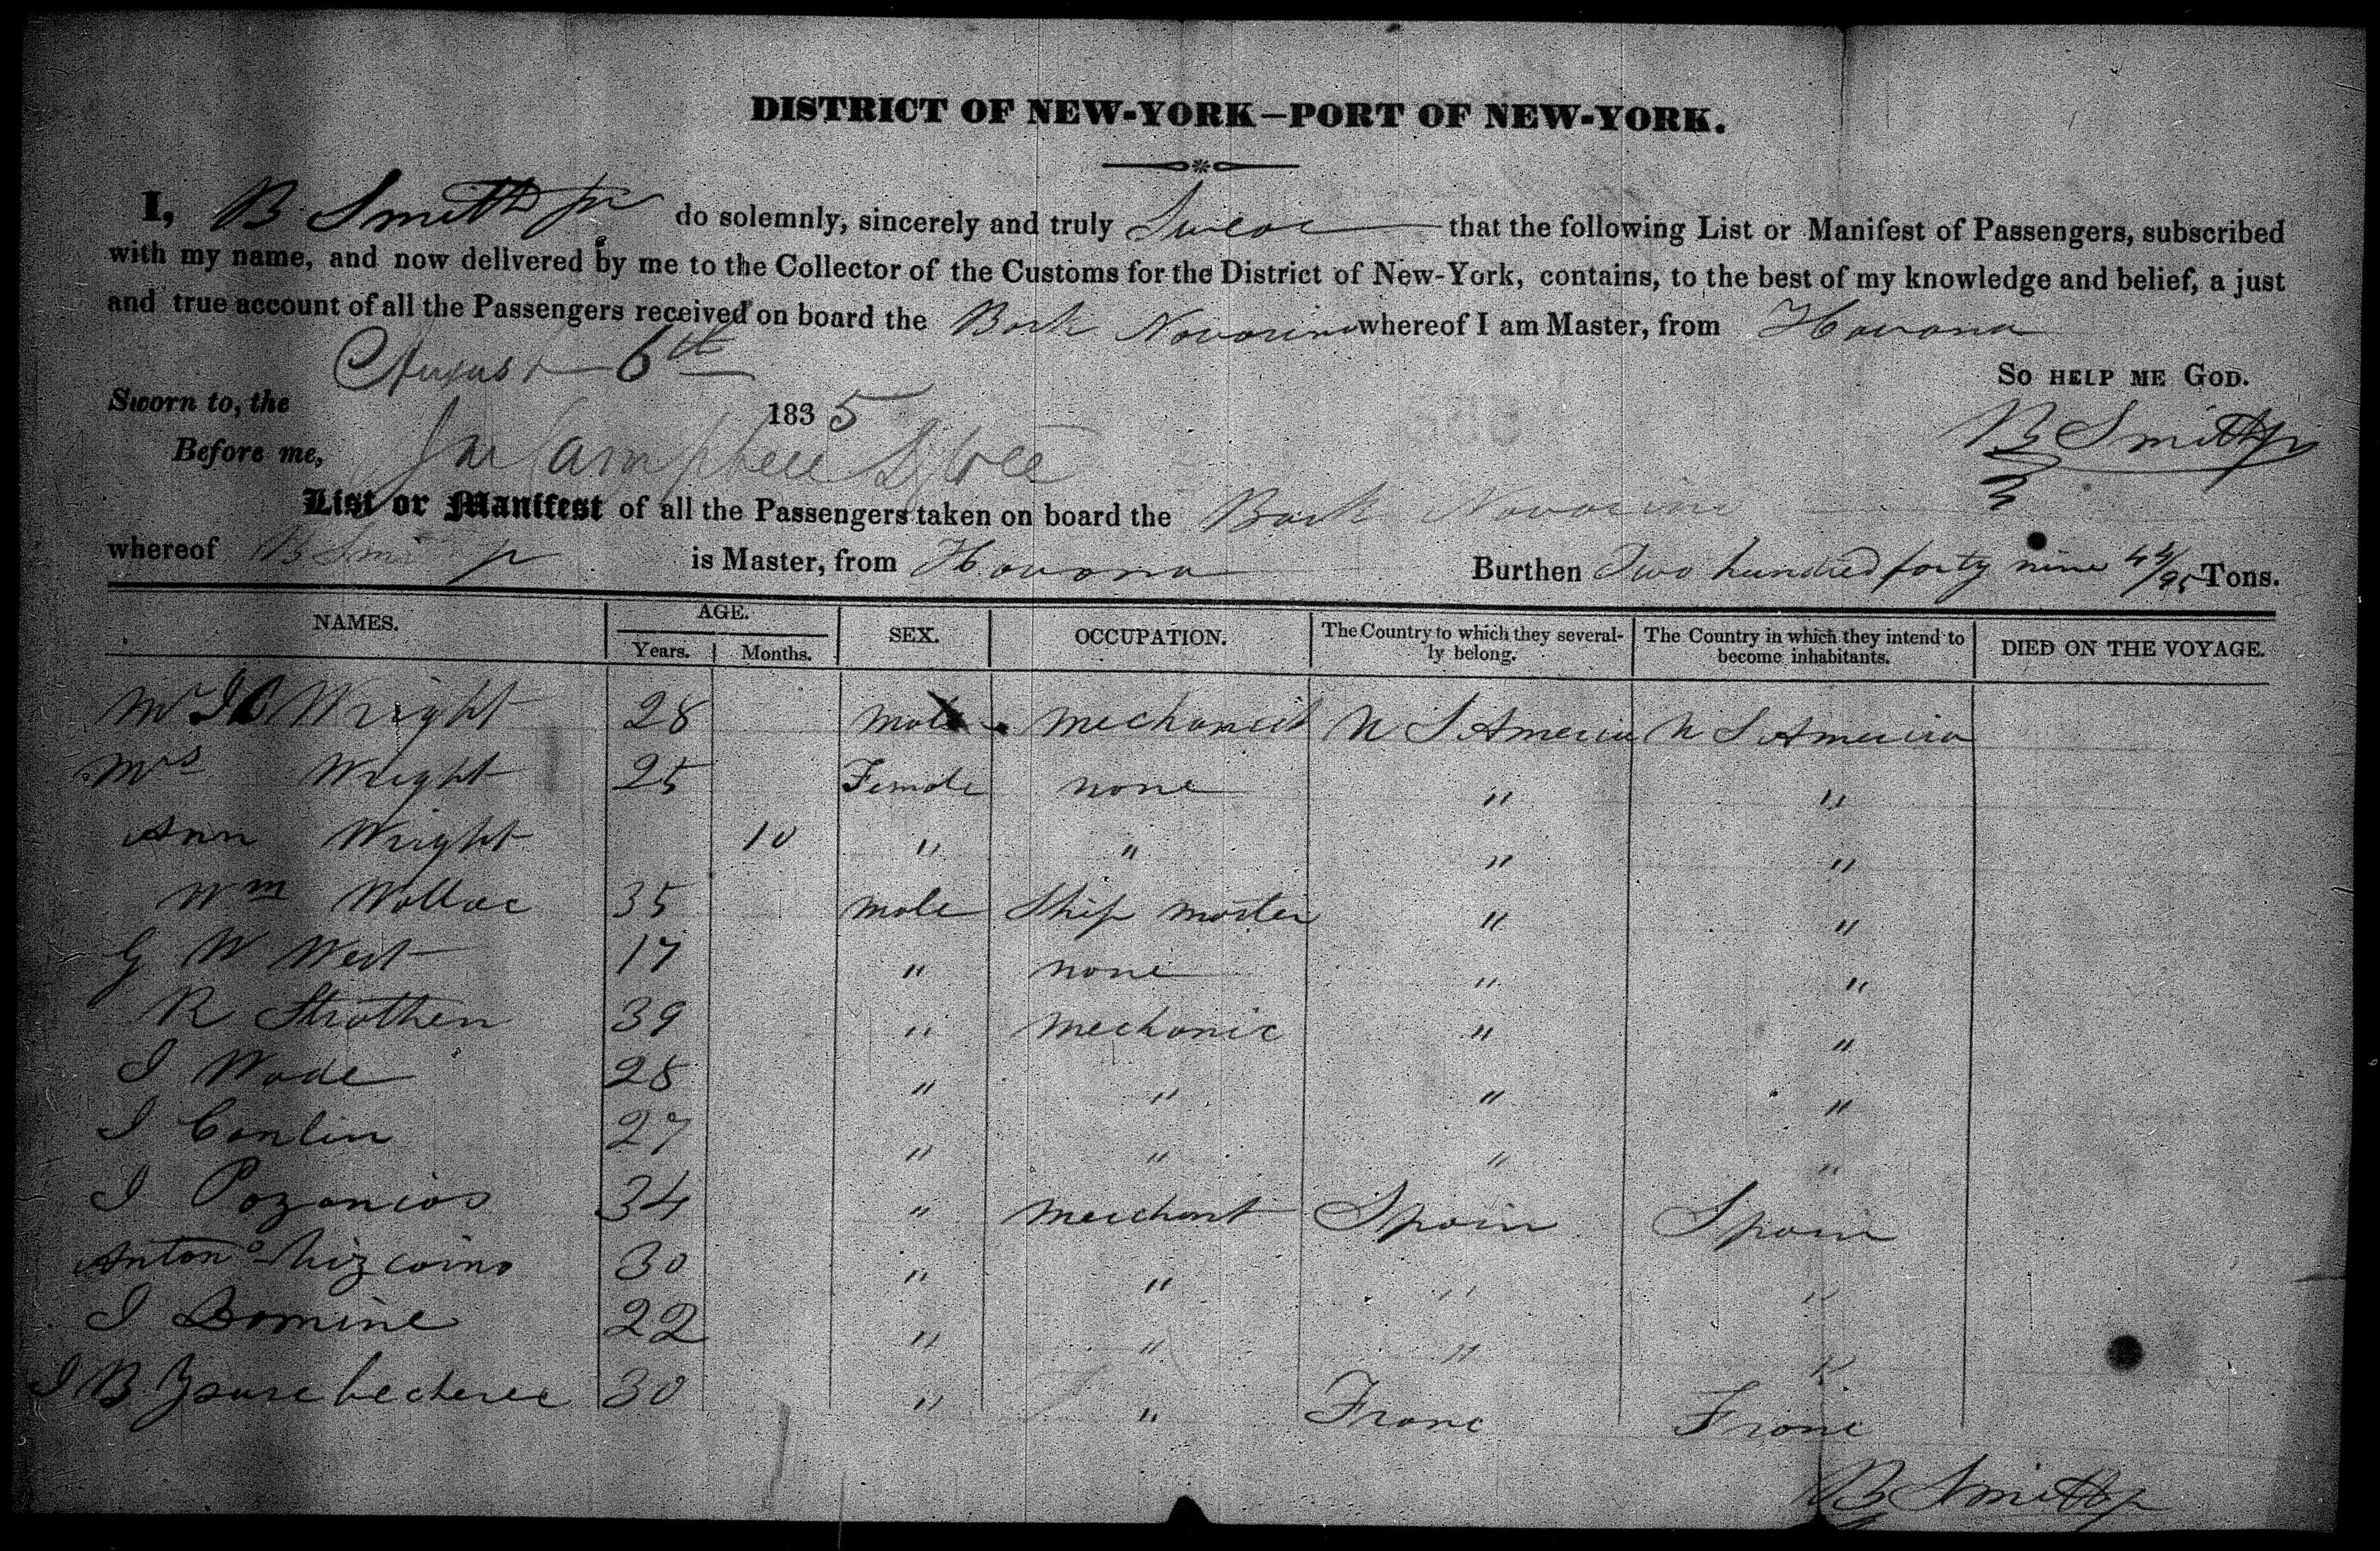 DISTRICT OF NEW-YORK—PORT OF NEW-YORK.
I, B Smith Jr do solemnly, sincerely and truly Swear that the following List or Manifest of Passengers, subscribed
with my name, and now delivered by me to the Collector of the Customs for the District of New-York, contains, to the best of my knowledge and belief, a just
and true account of all the Passengers received on board the Bark Navarino whereof I am Master, from Havana
August 6th
So HELP ME GOD.
Sworn to, the 1835
B Smith Jr
Before me, Campbell
List or Manifest of all the Passengers taken on board the Bark Navarino
whereof B Smith Jr is Master, from Havana Burthen Two hundred forty nine 44/95 Tons.
NAMES. AGE. Years. Months. SEX. OCCUPATION. The Country to which they severally belong. The Country in which they intend to become inhabitants. DIED ON THE VOYAGE.
Mr Wright 28 male U S America U S America
Mrs Wright 25 Female none " "
Ann Wright 10 " " " "
Wm Wallac 35 male Ship master " "
G W West 17 " none " "
R Strothen 39 " mechanic " "
I Wade 28 " " " "
I Conlin 27 " " " "
I Pozancos 34 " merchant Spain Spain
Anton° 30 " " " "
I Bomine 22 " " " "
I B 30 " " Franc Franc
B Smith Jr